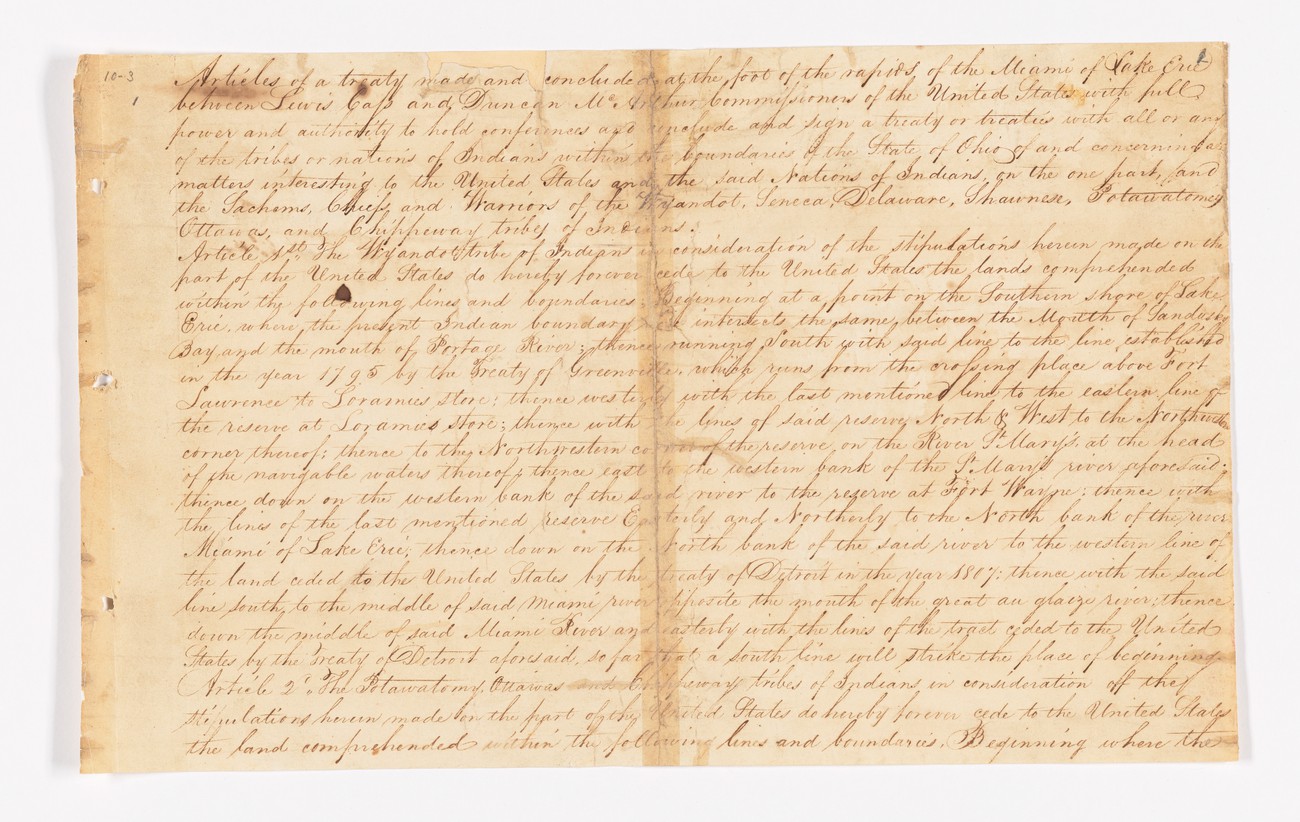 10-3
1
1
Articles of a treaty made and concluded at the foot of the rapids of the Miami of Lake Erie
between Lewis Cass and Duncan Mc. Arthur Commissioners of the United States with full
power and authority to hold conferences and conclude and sign a treaty or treaties with all or any
of the tribes or nations of Indians within the boundaries of the State of Ohio of and concerning all
matters interesting to the United States and the said Nations of Indians, on the one part, and
the Sachems, Chiefs, and Warriors of the Wyandot, Seneca, Delaware, Shawnese, Potawatomeys
Ottawas, and Chippeway tribes of Indians.
Article 1st. The Wyandot tribe of Indians in consideration of the stipulations herein made on the
part of the United States do hereby forever cede to the United States the lands comprehended
within the following lines and boundaries: Beginning at a point on the Southern shore of Lake
Erie, where the present Indian boundary line intersects the same, between the Mouth of Sandusky
Bay and the mouth of Portage River; thence running South with said line to the line established
in the year 1795 by the Treaty of Greenville, which runs from the crossing place above Fort
Lawrence to Loramies store; thence westerly with the last mentioned line to the eastern line of
the reserve at Loramies store; thence with the lines of said reserve, North & West to the Northwestern
corner thereof; thence to the Northwestern corner of the reserve on the River St. Mary's, at the head
of the navigable waters thereof; thence east to the western bank of the St. Mary's river aforesaid;
thence down on the western bank of the said river to the reserve at Fort Wayne; thence with
the lines of the last mentioned reserve Easterly and Northerly to the North bank of the river
Miami of Lake Erie; thence down on the North bank of the said river to the western line of
the land ceded to the United States by the treaty of Detroit in the year 1807; thence with the said
line south, to the middle of said Miami river opposite the mouth of the great au glaize river; thence
down the middle of said Miami River and easterly with the lines of the tract ceded to the United
States by the Treaty of Detroit aforesaid, so far that a south line will strike the place of beginning
Article 2d. The Potawatomy, Ottawas and Chippeway tribes of Indians in consideration of the
stipulations herein made on the part of the United States do hereby forever cede to the United States
the land comprehended within the following lines and boundaries. Beginning where the